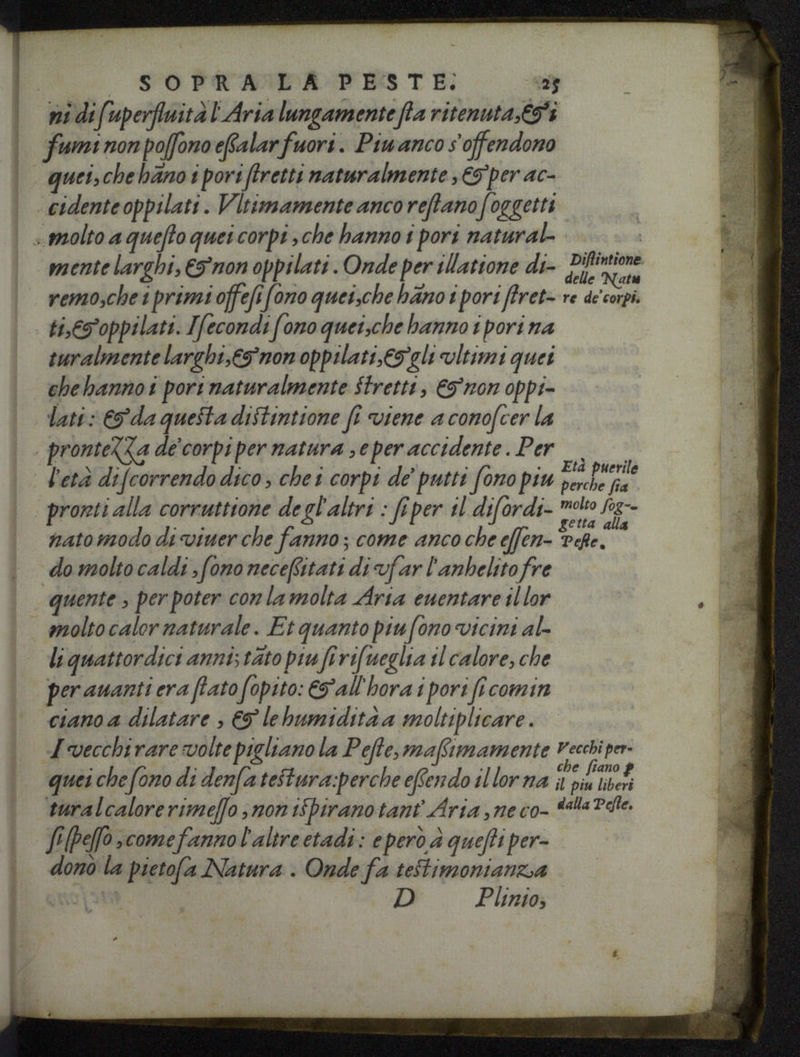 SOPRA LA PESTE. 25
ni di ſuperfluità l'Aria lungamente ſta ritenuta, & i
fumi non poſſono eßalar fuori. Piu anco s'offendono
quei, che hãno i pori ſtretti naturalmente, & per ac-
cidente oppilati. Vltimamente anco reſtano ſoggetti
molto a queſto quei corpi, che hanno i pori natural-
mente larghi, & non oppilati. Onde per illatione di-
remo, che i primi offeſi ſono quei, che hãno i pori ſtret-
ti, & oppilati. I ſecondi ſono quei, che hanno i pori na
turalmente larghi, & non oppilati, & gli vltimi quei
che hanno i pori naturalmente ſtretti, & non oppi-
lati: & da queſta diſtintione ſi viene a conoſcer la
prontezza de' corpi per natura, e per accidente. Per
l'età diſcorrendo dico, che i corpi de' putti ſono piu
pronti alla corruttione de gl'altri: ſi per il diſordi-
nato modo di viuer che fanno; come anco che eſſen-
do molto caldi, ſono neceßitati di vſar l'anhelito fre
quente, per poter con la molta Aria euentare il lor
molto calor naturale. Et quanto piu ſono vicini al-
li quattordici anni; tãto piu ſi riſueglia il calore, che
per auanti era ſtato ſopito: & all'hora i pori ſi comin
ciano a dilatare, & le humidità a moltiplicare.
I vecchi rare volte pigliano la Peſte, maßimamente
quei che ſono di denſa teſtura: perche eßendo il lor na
tural calore rimeſſo, non iſpirano tant'Aria, ne co-
ſi ſpeſſo, come fanno l'altre etadi: e però à queſti per-
donò la pietoſa Natura. Onde fa teſtimonianza
D Plinio,
Diſtintione
delle Natu
re de' corpi.
Età puerile
perche ſia
molto ſog-
getta alla
Peſte.
Vecchi per-
che ſiano ꝑ
il piu liberi
dalla Peſte.